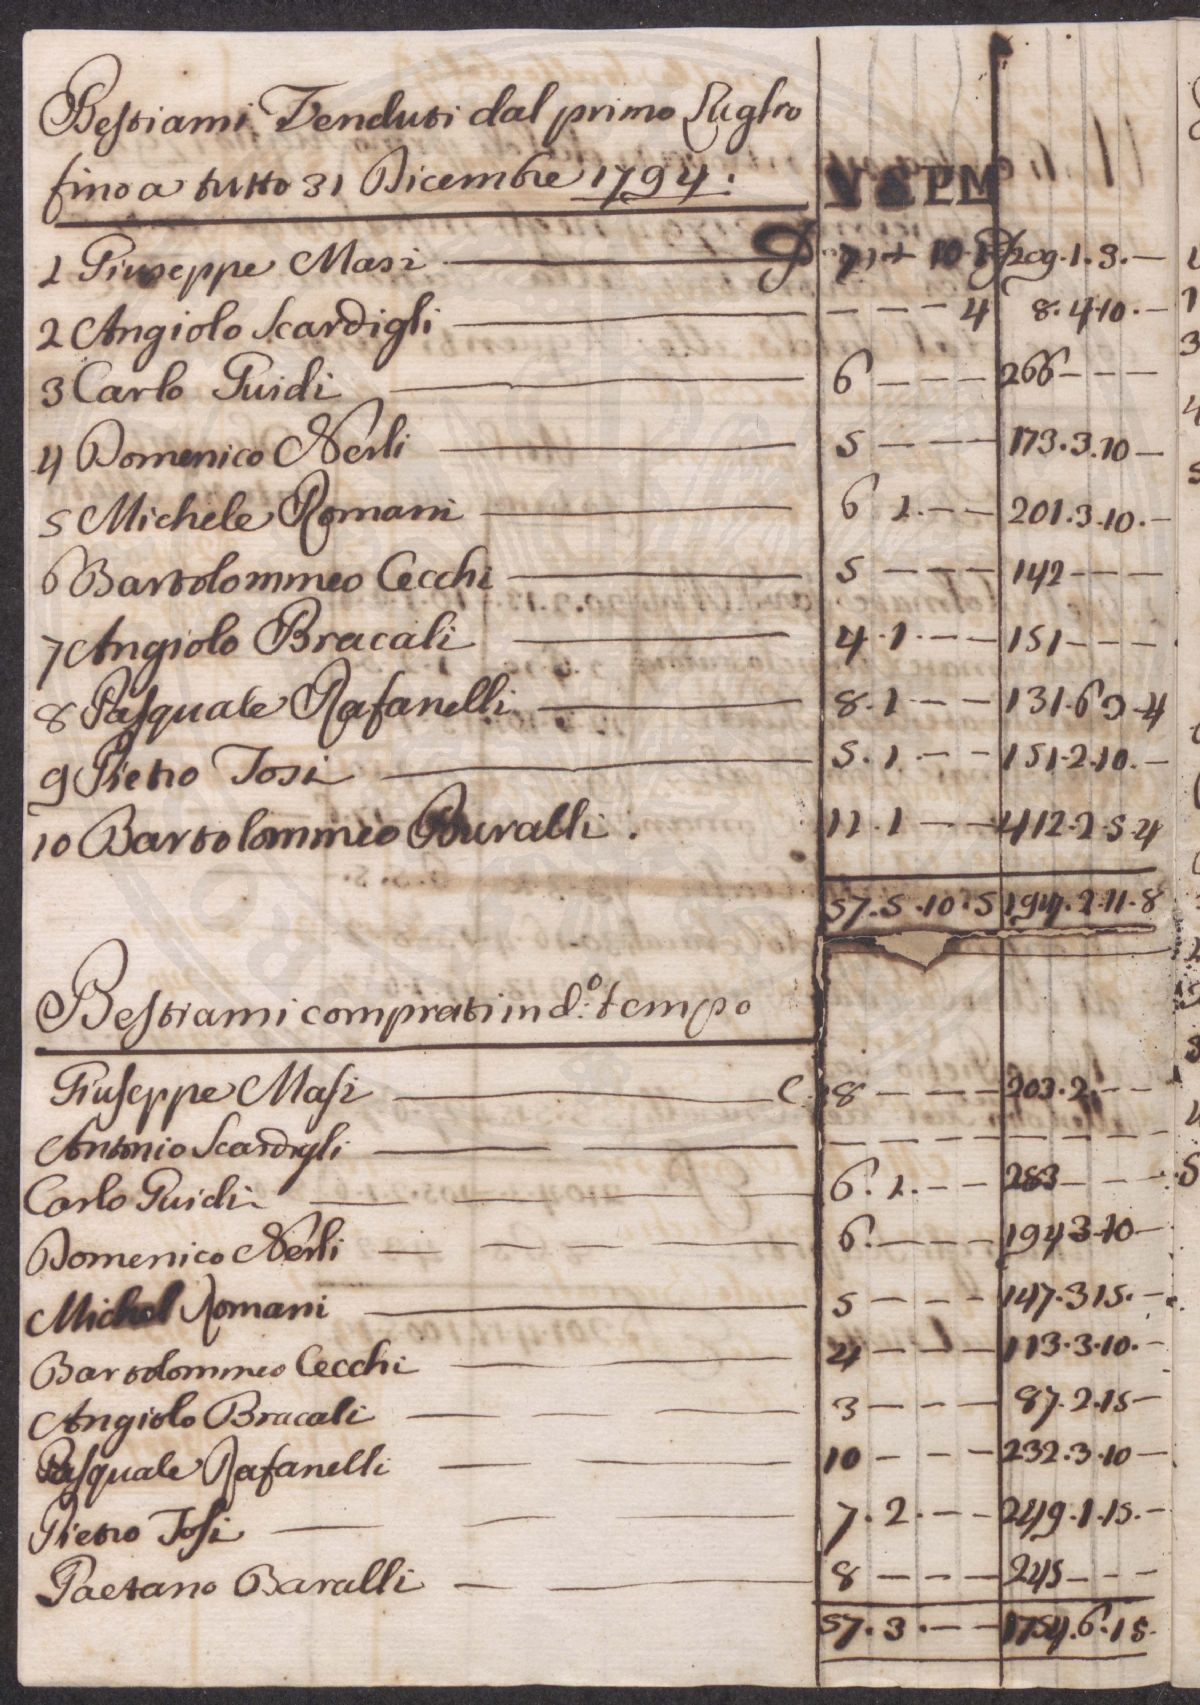 Bestiami Venduti dal primo Luglio
fino a tutto 31 Dicembre 1794:
V C P M
1 Giuseppe Masi 10 209.1.3.—
2 Angiolo Scardigli — — — 4 8.4.10.—
3 Carlo Guidi 6 — — — 266 — — —
4 Domenico Nerli 5 — — — 173.3.10 —
5 Michele Romani 6 1. — — 201.3.10.—
6 Bartolommeo Cecchi 5 — — — 142 — — —
7 Angiolo Bracali 4.1. — — 151 — — —
8 Pasquale Rafanelli 8.1 — — 131.6 3.4
9 Pietro Tosi 5.1. — — 151.2.10.—
10 Bartolommeo Buralli. 11.1 — — 412.2.5.4
57.5.10.5 1947.2.11.8
Bestiami comprati in d.º tempo
Giuseppe Masi 8 — — — 203.2. — —
Antonio Scardigli — — — — — — — —
Carlo Guidi 6.1. — — 283 — — —
Domenico Nerli 6. — — — 194 3.10 —
Michel Romani 5 — — — 147.3 15.—
Bartolommeo Cecchi 4 — — — 113.3.10.—
Angiolo Bracali 3 — — — 87.2.15 —
Pasquale Rafanelli 10 — — — 232.3.10 —
Pietro Tosi 7.2. — — 249.1.15.—
Gaetano Baralli 8 — — — 245 — — —
57.3. — — 1754.6.15.